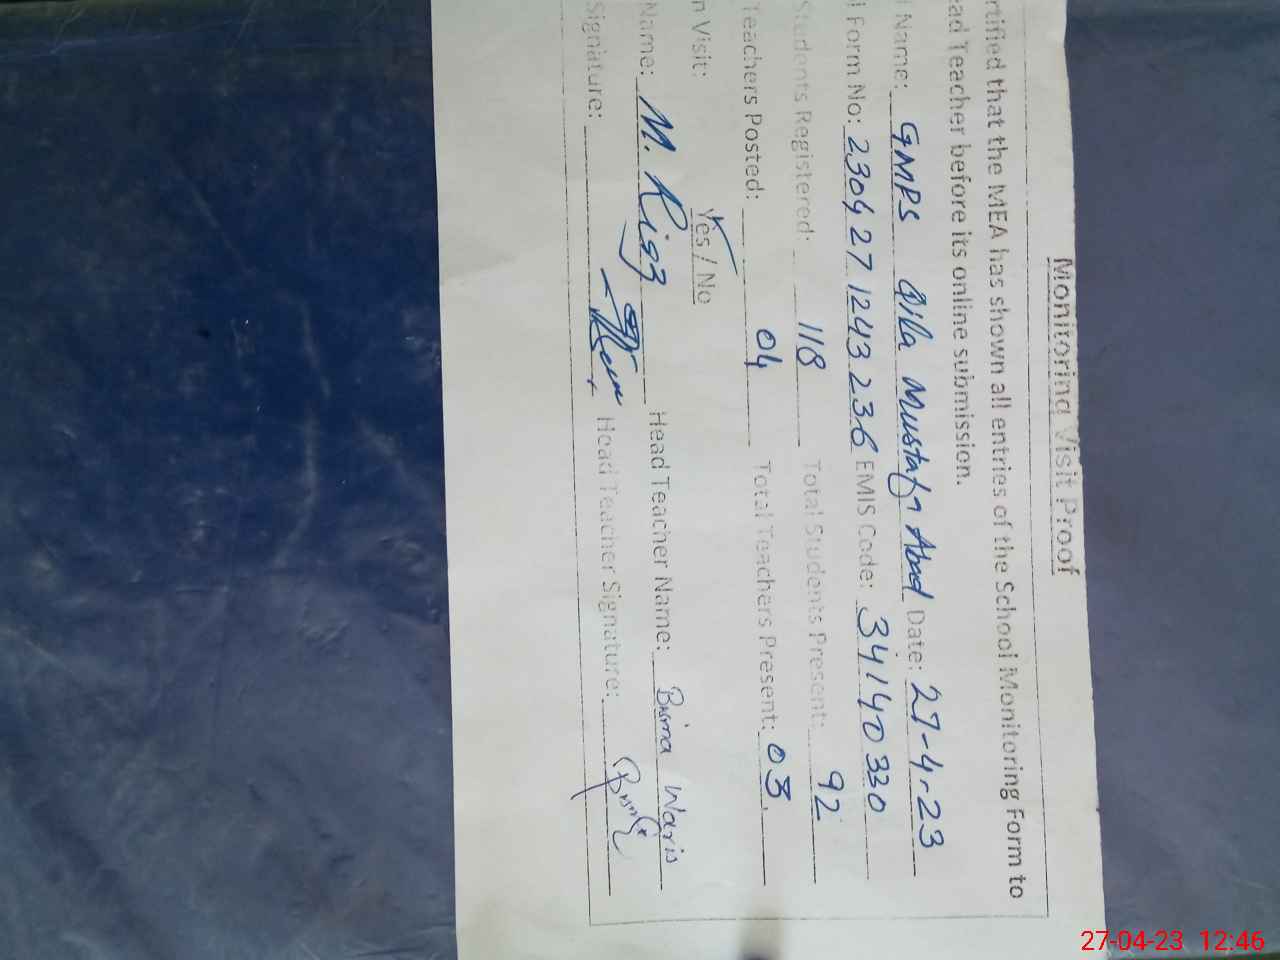 Monitoring Visit Proof
rtified that the MEA has shown all entries of the School Monitoring Form to
ead Teacher before its online submission.
l Name: GMPS Qila Mustafa Abad Date: 27-4-23
l Form No: 230427 1243 236 EMIS Code: 34140330
Students Registered: 118 Total Students Present: 92
Teachers Posted: 04 Total Teachers Present: 03
n Visit: Yes / No
Name: M. Riaz Head Teacher Name: Bisma Waris
Signature: Head Teacher Signature: Bisma
27-04-23 12:46